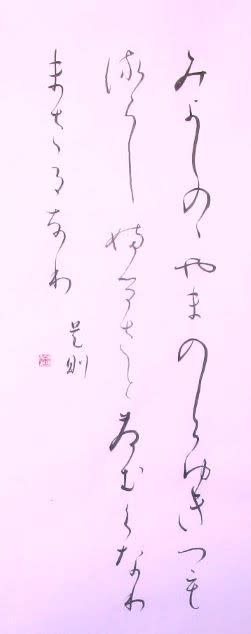 みよしのゝやまのしらゆきつも
るらしふるさとさむくなり
まさるなり
是則